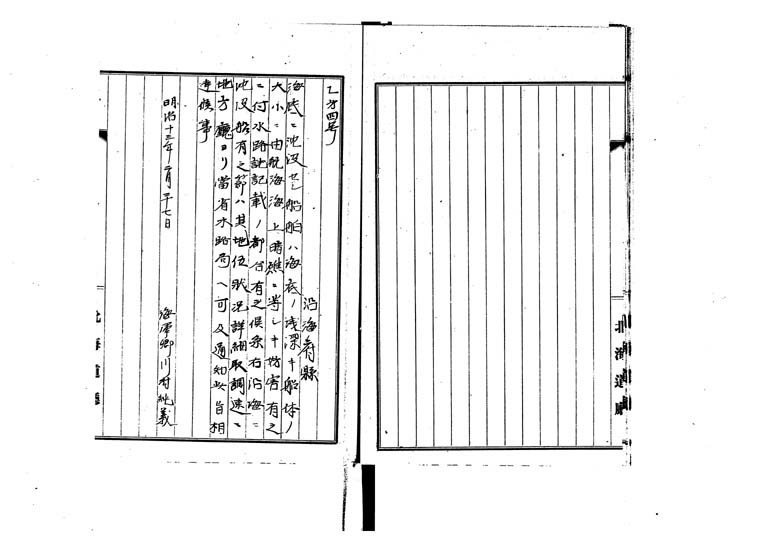 乙第四号
沿海府縣
海底ニ沈没セシ船舶ハ海底ノ浅深ト船体ノ
大小ニ由航海海上暗礁ニ等シキ妨害有之
ニ付水路誌記載ノ都合有之候条右沿海ニ
沈没船有之節ハ其地位状況詳細取調速ニ
地方廳ヨリ當省水路局ヘ可及通知此旨相
達候事
明治十三年二月廿七日
海軍卿川村純義
北海道廳
北海道廳